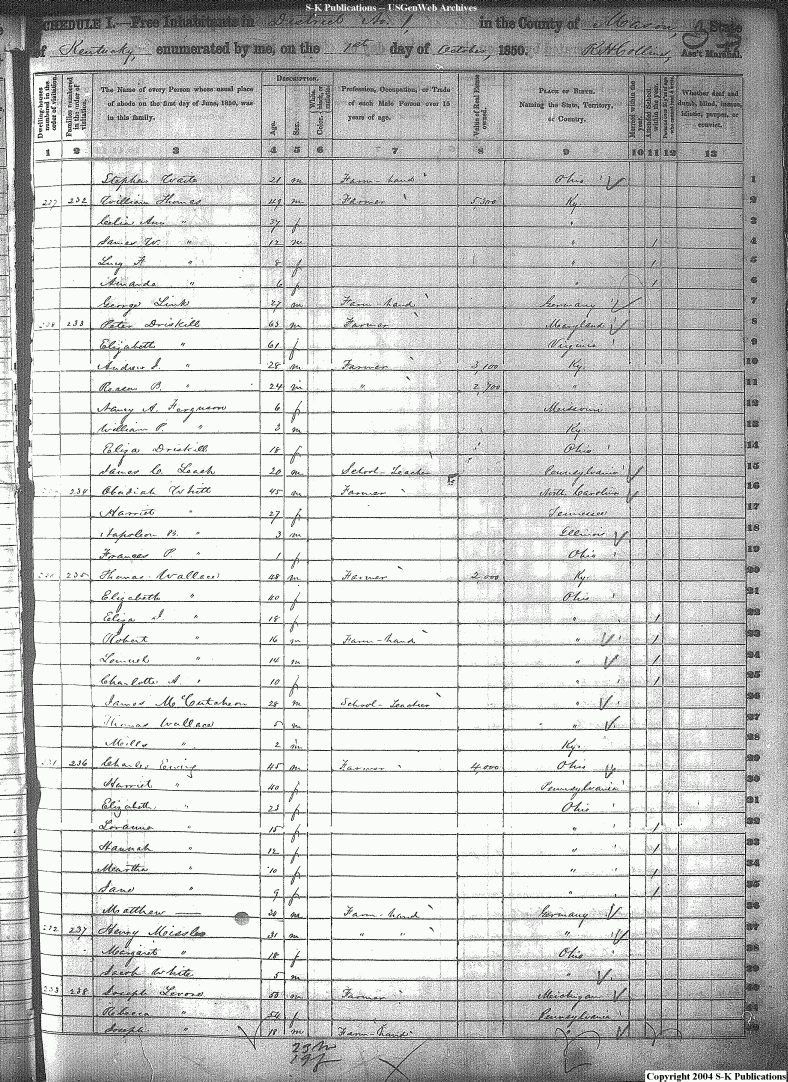 S-K Publications -- USGenWeb Archives
SCHEDULE I.—Free Inhabitants in District No. 1 in the County of Mason, State
of Kentucky, enumerated by me, on the 1st day of October, 1850. R H Collins, Ass't Marshal.
DESCRIPTION.
Dwelling-houses numbered in the order of visitation. Families numbered in the order of visitation. The Name of every Person whose usual place of abode on the first day of June, 1850, was in this family. Age. Sex. White, black, or mulatto. Profession, Occupation, or Trade of each Male Person over 15 years of age. Value of Real Estate owned. PLACE OF BIRTH. Naming the State, Territory, or Country. Married within the year. Whether deaf and dumb, blind, insane, idiotic, pauper, or convict.
1 2 3 4 5 6 7 8 9 10 11 12 13
Stephen Waite 21 m Farm-hand Ohio 1
227 232 William Thomas 49 m Farmer 5300 Ky. 2
Celia Ann " 37 f " 3
James W. " 12 m " / 4
Lucy F. " 8 f " / 5
Amanda " 6 f " / 6
George Link 27 m Farm-hand Germany 7
228 233 Peter Driskill 63 m Farmer Maryland 8
Elizabeth " 61 f Virginia 9
Andrew J. " 28 m Farmer 3,100 Ky. 10
Reason B. " 24 m " 2,700 " 11
Nancy A. Ferguson 6 f Missouri 12
William P. " 3 m Ky. 13
Eliza Driskill 18 f Ohio 14
James C. Leach 20 m School-Teacher Pennsylvania 15
234 Obadiah Whitt 45 m Farmer North Carolina 16
Harriet " 27 f Tennessee 17
Napoleon B. " 3 m Illinois 18
Frances P. " 1 f Ohio 19
230 235 Thomas Wallace 48 m Farmer 2,000 Ky. 20
Elizabeth " 40 f Ohio 21
Eliza J. " 18 f " / 22
Robert " 16 m Farm-hand " / 23
Lemuel " 14 m " / 24
Charlotte A. " 10 f " / 25
James McCutcheon 28 m School-Teacher " 26
Thomas Wallace 5 m " 27
Mills " 2 m Ky. 28
231 236 Charles Ewing 45 m Farmer 4,000 Ohio 29
Harriet " 40 f Pennsylvania 30
Elizabeth " 23 f Ohio 31
Loranna " 15 f " / 32
Hannah " 12 f " / 33
Martha " 10 f " / 34
Jane " 9 f " / 35
Matthew —— 30 m Farm-hand Germany 36
232 237 Henry 31 m " " " 37
Margaret " 18 f Ohio 38
Jacob White 5 m " 39
233 238 Joseph 53 m Farmer Michigan 40
Rebecca " 54 f Pennsylvania 41
Joseph " 18 m Farm-hand " 42
23 m
19 f
Copyright 2004 S-K Publications